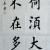 何須大
不在多